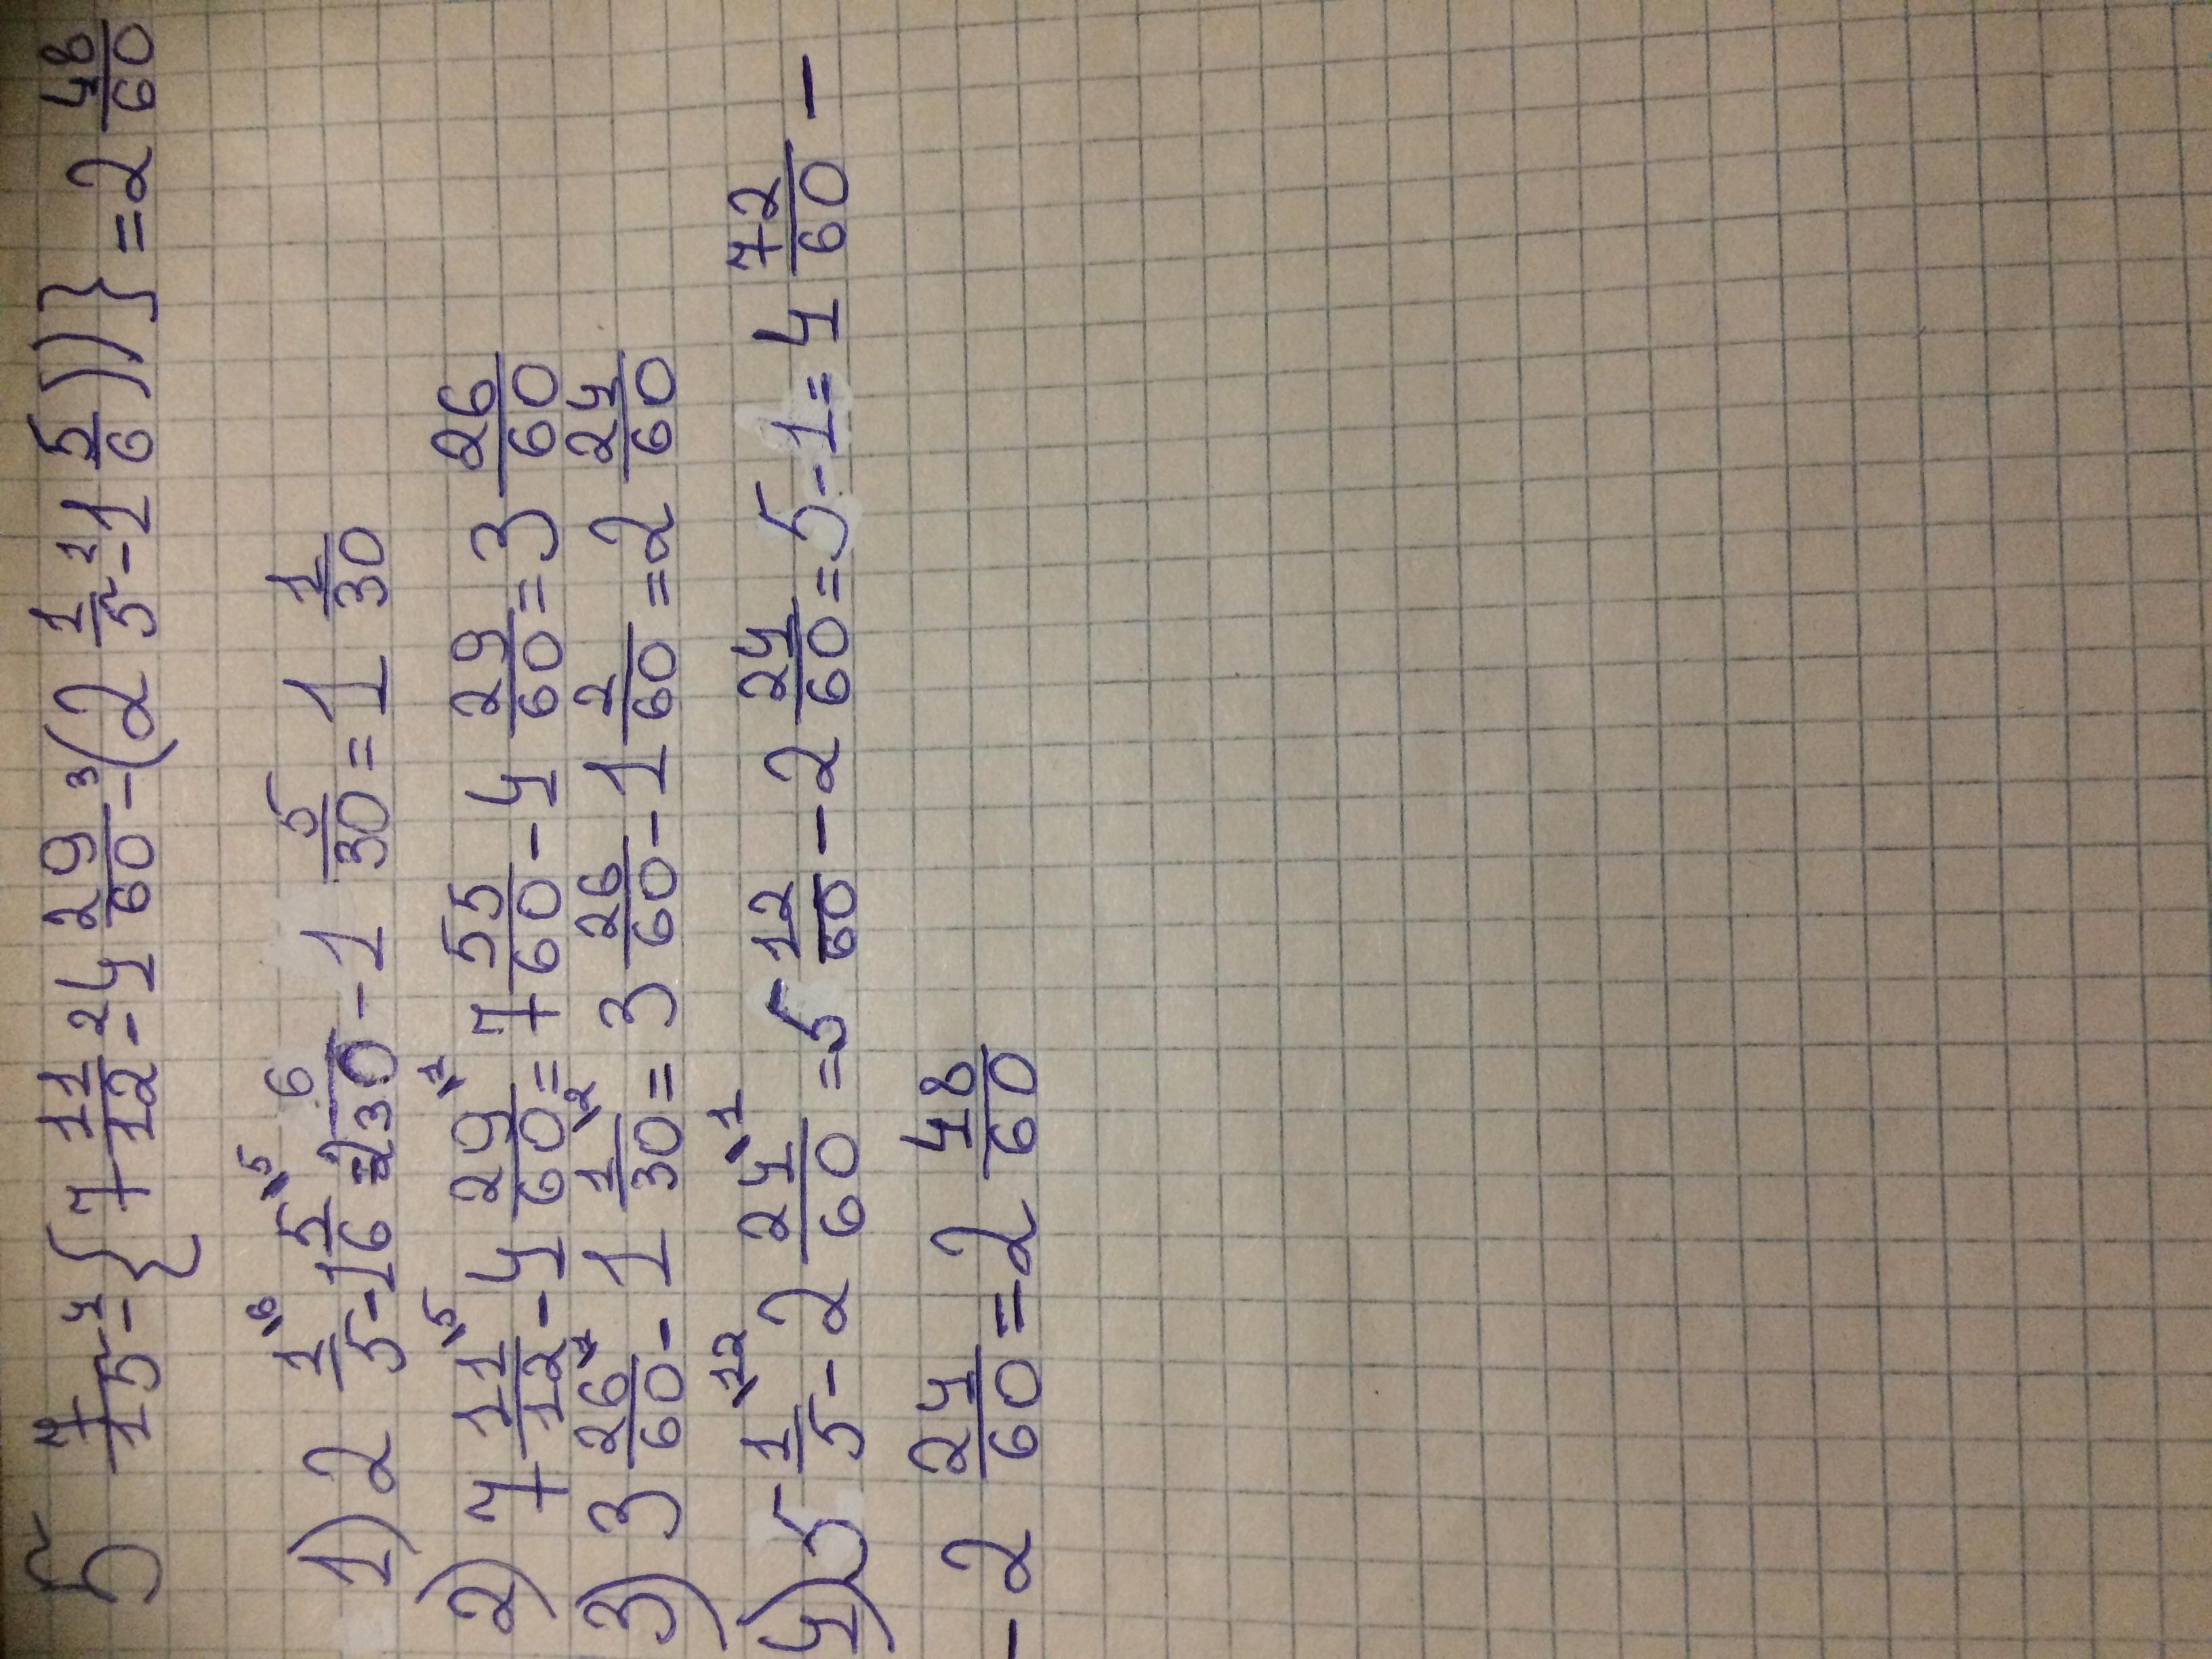 5 7/15 -⁴ {7 11/12 -² 4 29/60 -³ (2 1/5 -¹ 1 5/6))} = 2 48/60
1) 2 1/5 \6 - 1 5/6 \5 = 2 6/30 - 1 5/30 = 1 1/30
2) 7 11/12 \5 - 4 29/60 \1 = 7 55/60 - 4 29/60 = 3 26/60
3) 3 26/60 \1 - 1 1/30 \2 = 3 26/60 - 1 2/60 = 2 24/60
4) 5 1/5 \12 - 2 24/60 \1 = 5 12/60 - 2 24/60 = 5 - 1 = 4 72/60 -
- 2 24/60 = 2 48/60